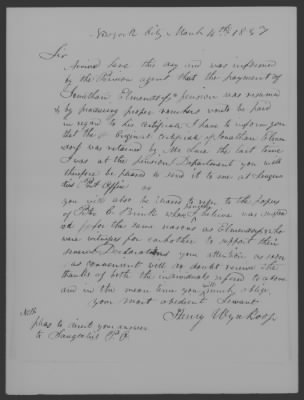 New york City March 14th 1837
Sir
Arrived here this day and was informed
by the Pension agent that the payment of
Jonathan Elmendorf's pension was resumed
& by producing proper vouchers would be paid
in regard to his Certificate I have to inform you
that the Original Certificate of Jonathan Elmen
dorf was retained by Mr the last time
I was at the pension Department you will
therefore be pleased to send it to me at
Post Office as
you will also be to refer to the papers
of Peter whose pension I believe was
ed for the same reasons as Elmendorf who
were witnesses for each other to support their
Declarations your attention as soon
as convenient will no doubt receive the
thanks of both the individuals refered to above
and in the mean time you will much oblige
your most obedient Servant
Henry Wynkoop
Note
pleas to direct your answer
to Saugerties P.O.